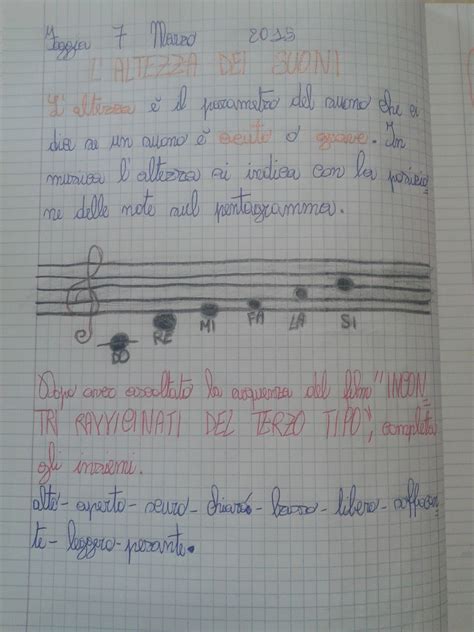 Foggia 7 Marzo 2015
L'ALTEZZA DEI SUONI
L'altezza è il parametro del suono che ci
dice se un suono è acuto o grave. In
musica l'altezza si indica con la posizio
ne delle note sul pentagramma.
DO RE MI FA LA SI
Dopo aver ascoltato la sequenza del film "INCON
TRI RAVVICINATI DEL TERZO TIPO", completa
gli insiemi.
alto - aperto - scuro - chiaro - basso - libero - soffocan
te - leggero - pesante.